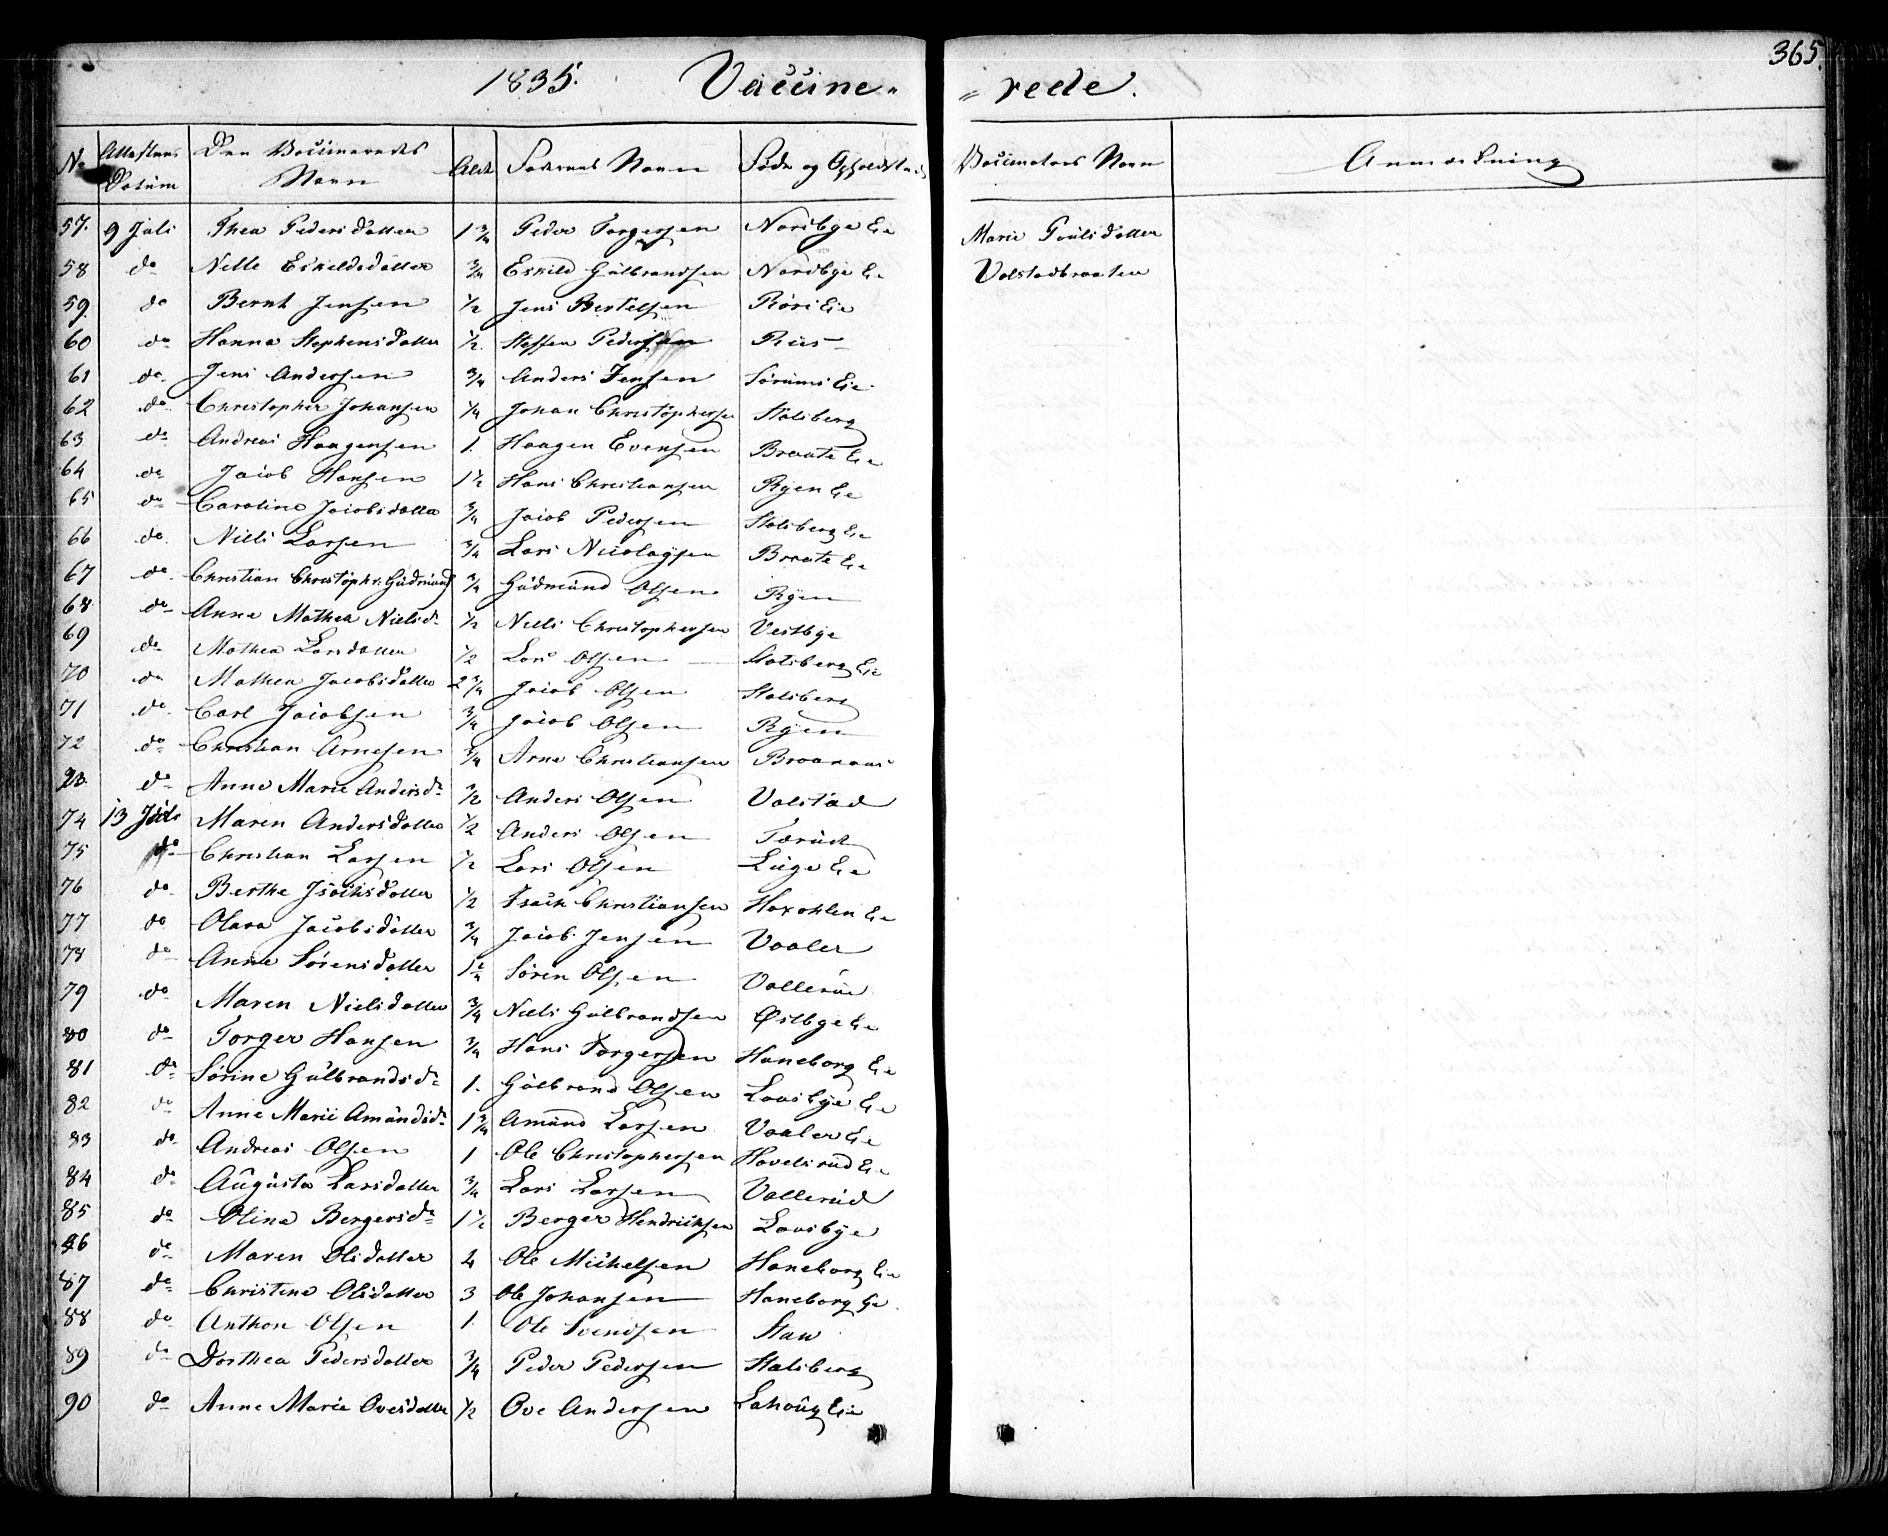 365.
1835. Vaccine- =rede.
No Attestens Datum Den Vaccineredes Navn Alder Faderens Navn Føde og Opholdsted Vaccinateurs Navn Anmærkning
57. 9 Juli Thea Pedersdatter 1 3/4 Peder Torgersen Nordbye Eie Marie Poulsdatter
58 do Nelle Eskildsdatter 3/4 Eskild Gulbrandsen Nordbye Eie Volstadbraaten
59. do Bernt Jensen 1/2 Jens Bertelsen Røes Eie
60 do Hanna Stephensdatter 1/2. Steffen Pedersen Riis
61 do. Jens Andersen 3/4 Anders Jensen Sørums Eie
62 do. Christopher Johansen 1/4 Johan Christophersen Stalsberg
63 do Andreas Haagensen 1. Haagen Evensen Braate Eie
64 do Jacob Hansen 1 1/2 Hans Christiansen Ryen Eie
65 do Caroline Jacobsdatter 3/4 Jacob Pedersen Stalsberg Eie
66 do. Niels Larsen 3/4 Lars Nicolaysen Braate Eie
67 do. Christian Christophr: Gudmunds 3/4 Gudmund Olsen Ryen
68 do Anne Mathea Nielsdr 1/2 Niels Christophersen Vestbye
69 do Mathea Larsdatter 1/2 Lars Olsen Stalsberg Eie
70 do Mathea Jacobsdatter 2 3/4 Jacob Olsen Stalsberg
71 do. Carl Jacobsen 3/4 Jacob Olsen Ryen
72 do Christian Arnesen 3/4 Arne Christiansen Braanaas
73. do Anne Marie Andersdr 1/2 Anders Olsen Volstad
74 13 Juli Maren Andersdatter 1/2 Anders Olsen Tærud
75 do Christian Larsen 1/2 Lars Olsen Luge Eie
76 do. Berthe Isachsdatter 1/2 Isach Christiansen Haxohlen Eie
77 do Olava Jacobsdatter 3/4 Jacob Jensen Vaaler
78 do Anne Sørensdatter 1 Søren Olsen Vallerud
79 do Maren Nielsdatter 3/4 Niels Gulbrandsen Østbye Eie
80 do Torger Hansen 3/4 Hans Torgersen Haneborg Eie
81 do Sørine Gulbrandsdr 1. Gulbrand Olsen Laasbye Eie
82 do Anne Marie Amundsdr 1 3/4 Amund Larsen Vaaler Eie
83 do Andreas Olsen 1 Ole Christophersen Havelsrud Eie
84 do Augusta Larsdatter 3/4 Lars Larsen Vallerud
85 do Oline Bergersdr 1 1/2 Berger Hendrichsen Laasbye
86 do Maren Olsdatter 2 Ole Michelsen Haneborg Eie
87 do Christine Olsdatter 3 Ole Johansen Haneborg Eie.
88 do Anthon Olsen 1. Ole Svendsen Staw
89 do Dorthea Pedersdatter 3/4 Peder Pedersen Stalsberg
90 do Anne Marie Ovesdatter 1/2 Ove Andersen Lahaug Eie